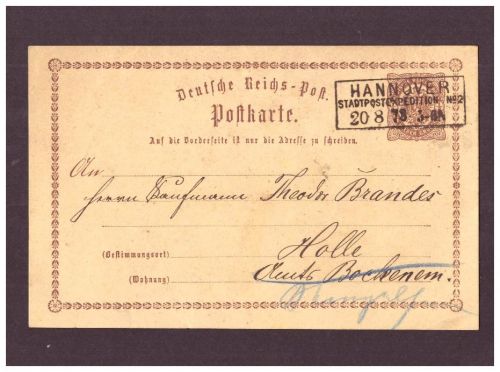 Deutsche Reichs-Post.
Postkarte.
HANNOVER
STADTPOSTEXPEDITION No2
20 8 73
Auf die Vorderseite ist nur die Adresse zu schreiben.
An
Herrn Kaufmann Theodor Brandes
Holle
(Bestimmungsort)
Amts Bockenem.
(Wohnung)